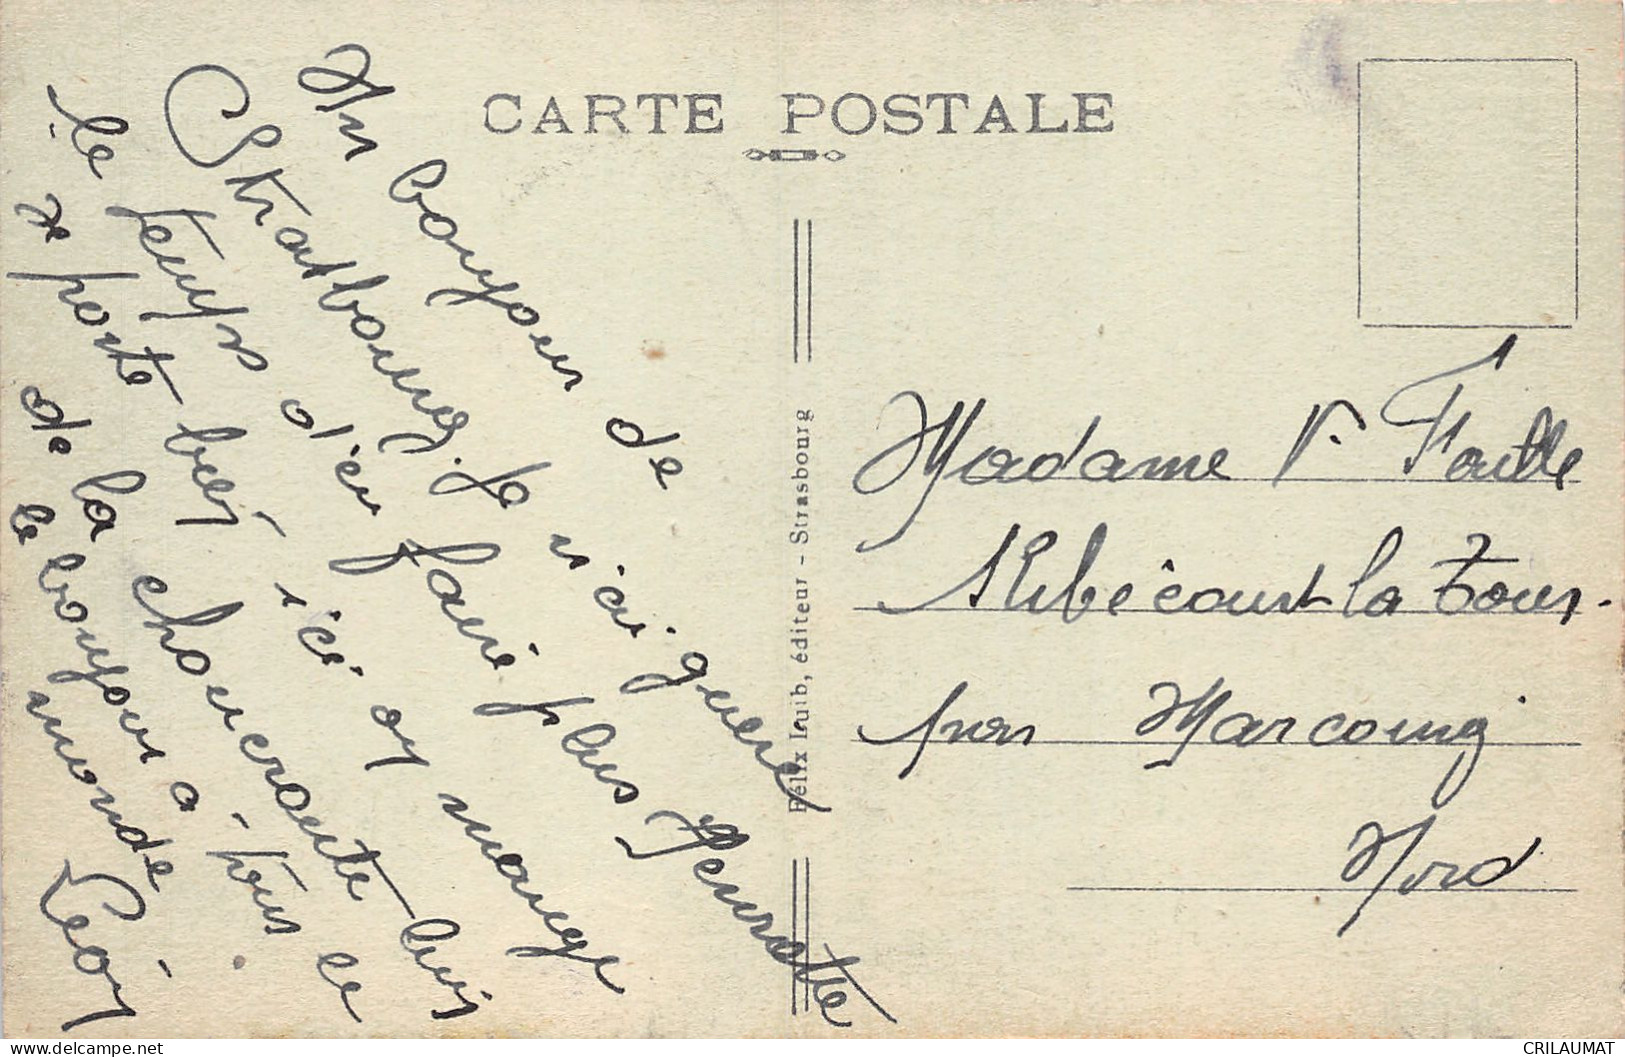 CARTE POSTALE
Un bonjour de
Strasbourg. Je n'ai guere
le temps d'en faire plus, Henriette
se porte bien, ici on mange
de la choucroute bien
le bonjour a tous le
monde
Léon
Félix Luib, éditeur - Strasbourg
Madame V. Faille
Ribécourt la Tour
par Marcoing
Nord
CRILAUMAT